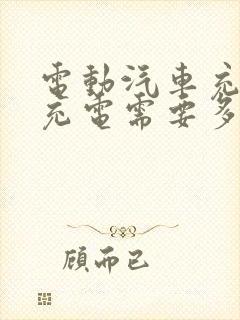 電動汽車充
充電需要多
顧而已